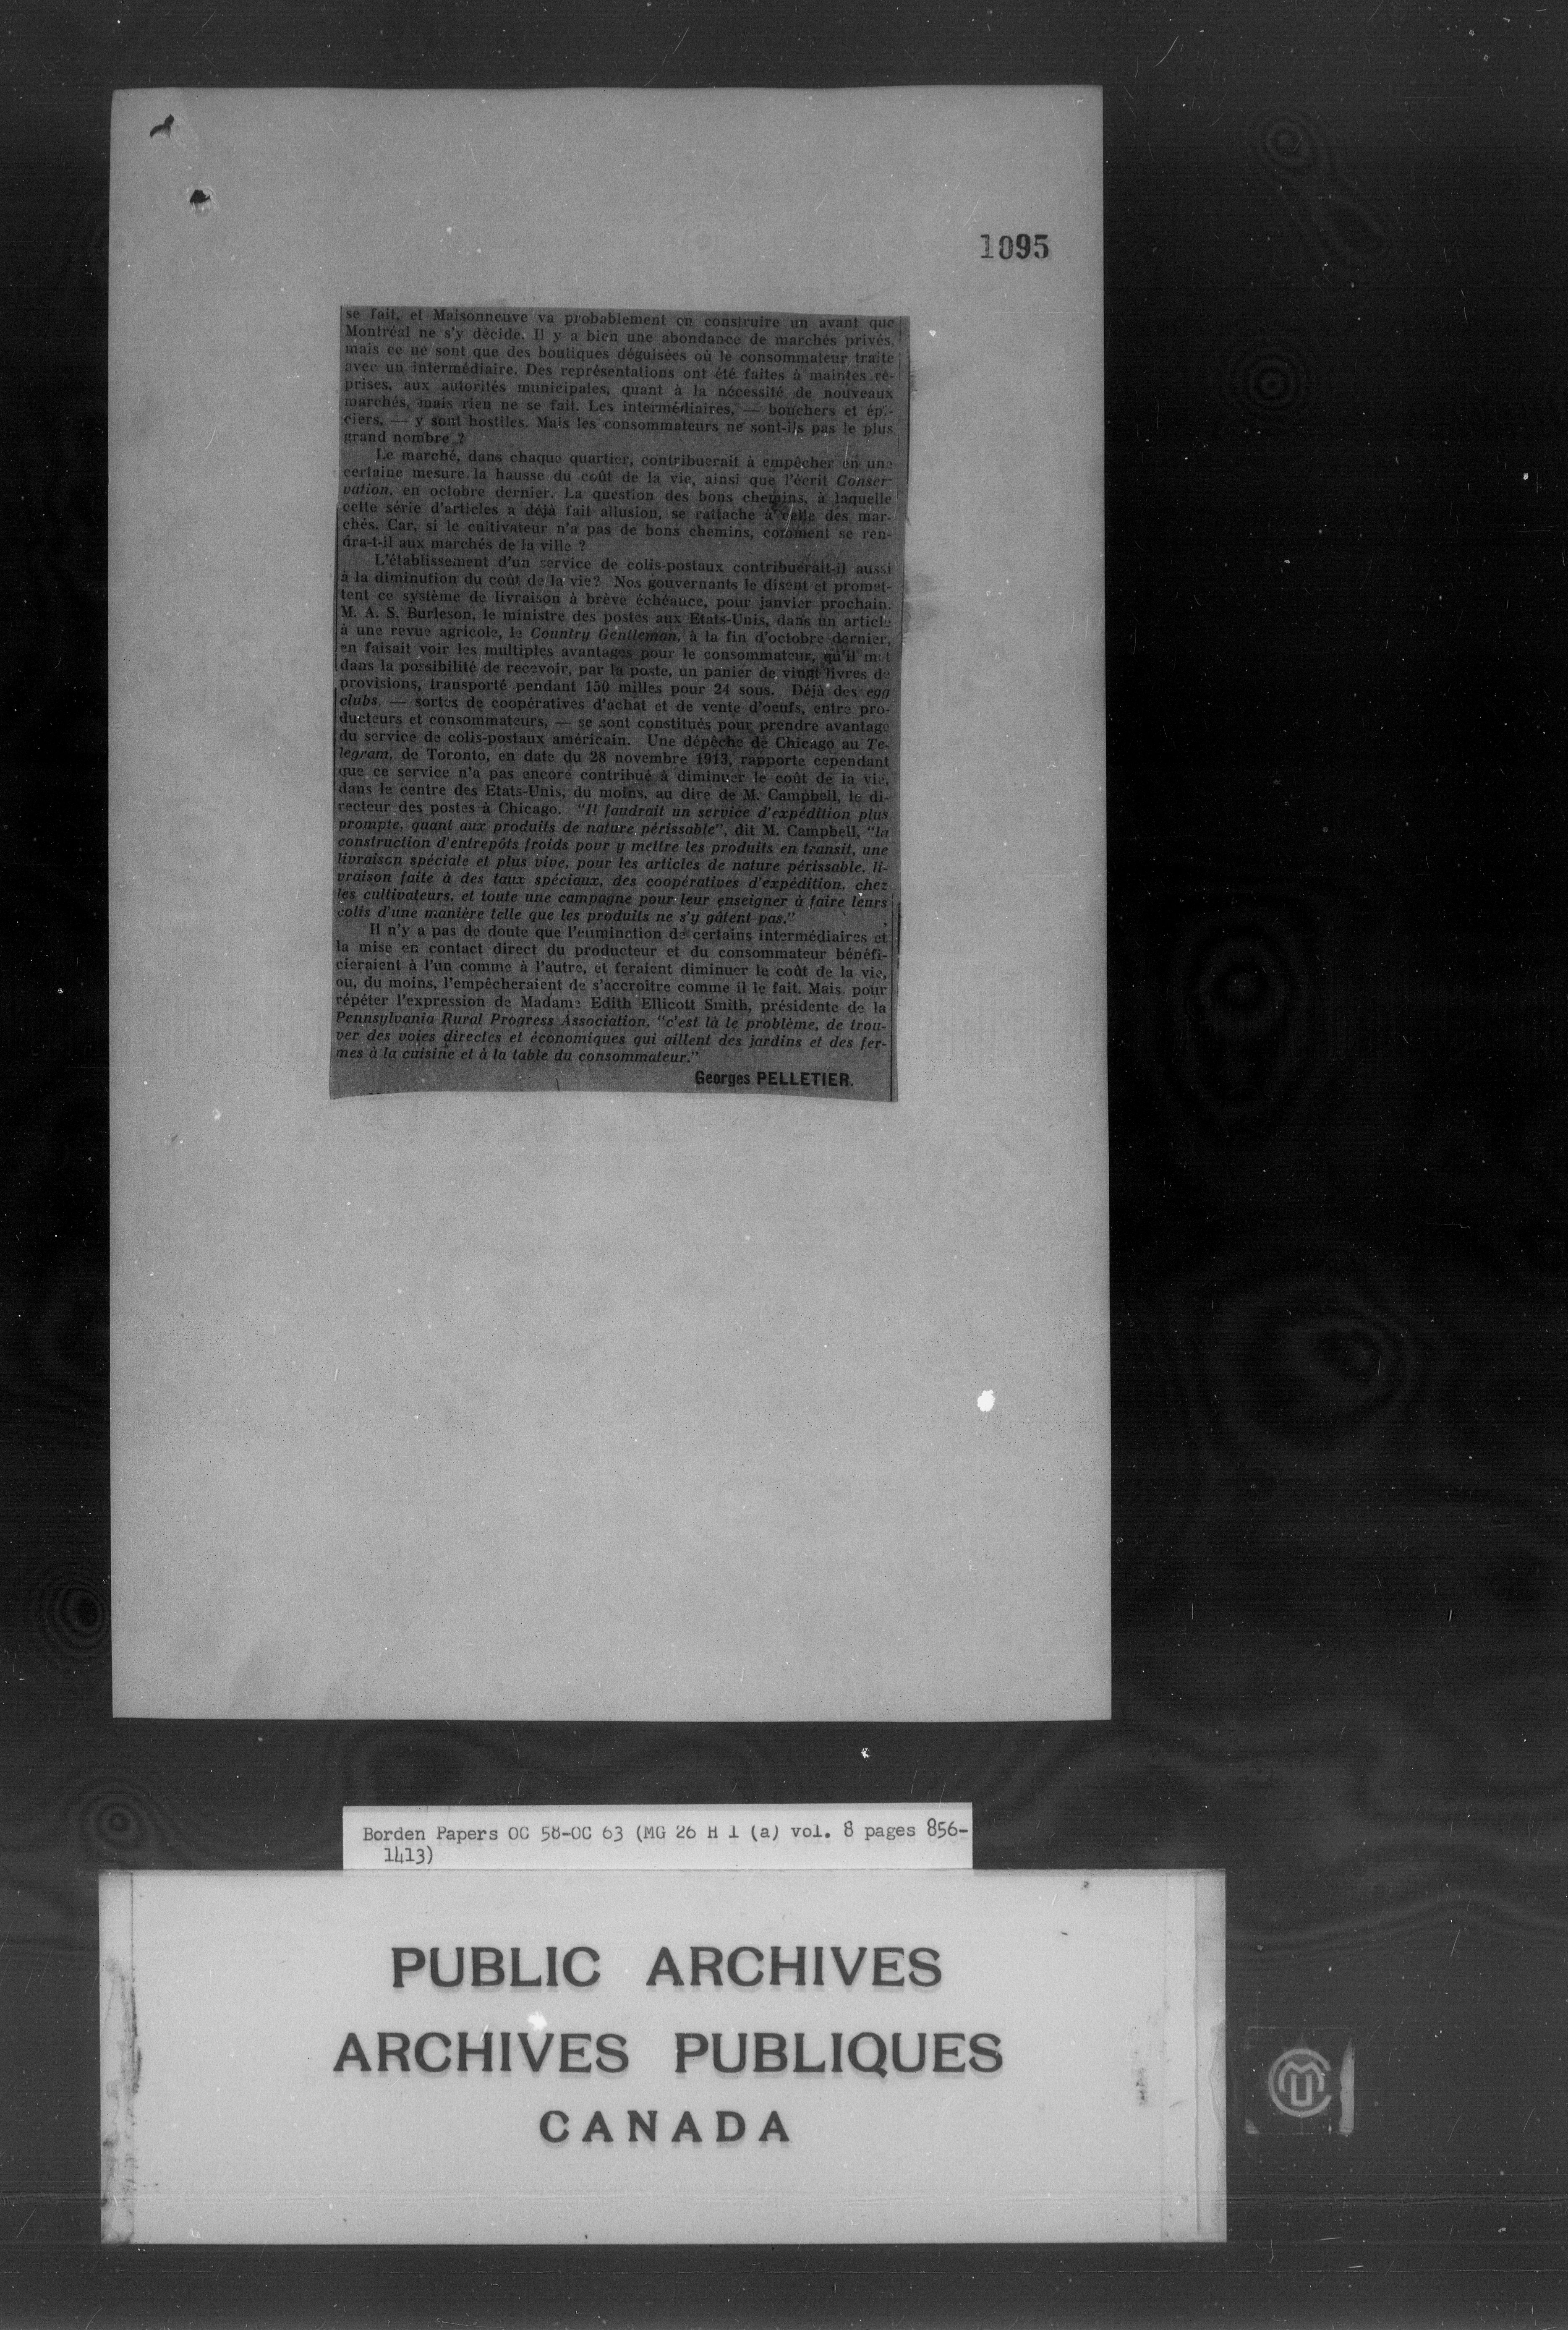 1095
se fait, et Maisonneuve va probablement en construire un avant que
Montréal ne s'y décide. Il y a bien une abondance de marchés privés,
mais ce ne sont que des boutiques déguisées où le consommateur traite
avec un intermédiaire. Des représentations ont été faites à maintes re-
prises, aux autorités municipales, quant à la nécessité de nouveaux
marchés, mais rien ne se fait. Les intermédiaires, — bouchers et épi-
ciers, — y sont hostiles. Mais les consommateurs ne sont-ils pas le plus
grand nombre ?
Le marché, dans chaque quartier, contribuerait à empêcher en une
certaine mesure la hausse du coût de la vie, ainsi que l'écrit Conser-
vation, en octobre dernier. La question des bons chemins, à laquelle
cette série d'articles a déjà fait allusion, se rattache à celle des mar-
chés. Car, si le cultivateur n'a pas de bons chemins, comment se ren-
dra-t-il aux marchés de la ville ?
L'établissement d'un service de colis-postaux contribuerait-il aussi
à la diminution du coût de la vie? Nos gouvernants le disent et promet-
tent ce système de livraison à brève échéance, pour janvier prochain.
M. A. S. Burleson, le ministre des postes aux Etats-Unis, dans un article
à une revue agricole, le Country Gentleman, à la fin d'octobre dernier,
en faisait voir les multiples avantages pour le consommateur, qu'il met
dans la possibilité de recevoir, par la poste, un panier de vingt livres de
provisions, transporté pendant 150 milles pour 24 sous. Déjà des egg
clubs, — sortes de coopératives d'achat et de vente d'oeufs, entre pro-
ducteurs et consommateurs, — se sont constitués pour prendre avantage
du service de colis-postaux américain. Une dépêche de Chicago au Te-
legram, de Toronto, en date du 28 novembre 1913, rapporte cependant
que ce service n'a pas encore contribué à diminuer le coût de la vie,
dans le centre des Etats-Unis, du moins, au dire de M. Campbell, le di-
recteur des postes à Chicago. "Il faudrait un service d'expédition plus
prompte, quant aux produits de nature périssable", dit M. Campbell, "la
construction d'entrepôts froids pour y mettre les produits en transit, une
livraison spéciale et plus vive, pour les articles de nature périssable, li-
vraison faite à des taux spéciaux, des coopératives d'expédition, chez
les cultivateurs, et toute une campagne pour leur enseigner à faire leurs
colis d'une manière telle que les produits ne s'y gâtent pas."
Il n'y a pas de doute que l'eumination de certains intermédiaires et
la mise en contact direct du producteur et du consommateur bénéfi-
cieraient à l'un comme à l'autre, et feraient diminuer le coût de la vie,
ou, du moins, l'empêcheraient de s'accroître comme il le fait. Mais, pour
répéter l'expression de Madame Edith Ellicott Smith, présidente de la
Pennsylvania Rural Progress Association, "c'est là le problème, de trou-
ver des voies directes et économiques qui aillent des jardins et des fer-
mes à la cuisine et à la table du consommateur."
Georges PELLETIER.
Borden Papers OC 58-OC 63 (MG 26 H 1 (a) vol. 8 pages 856-
1413)
PUBLIC ARCHIVES
ARCHIVES PUBLIQUES
CANADA